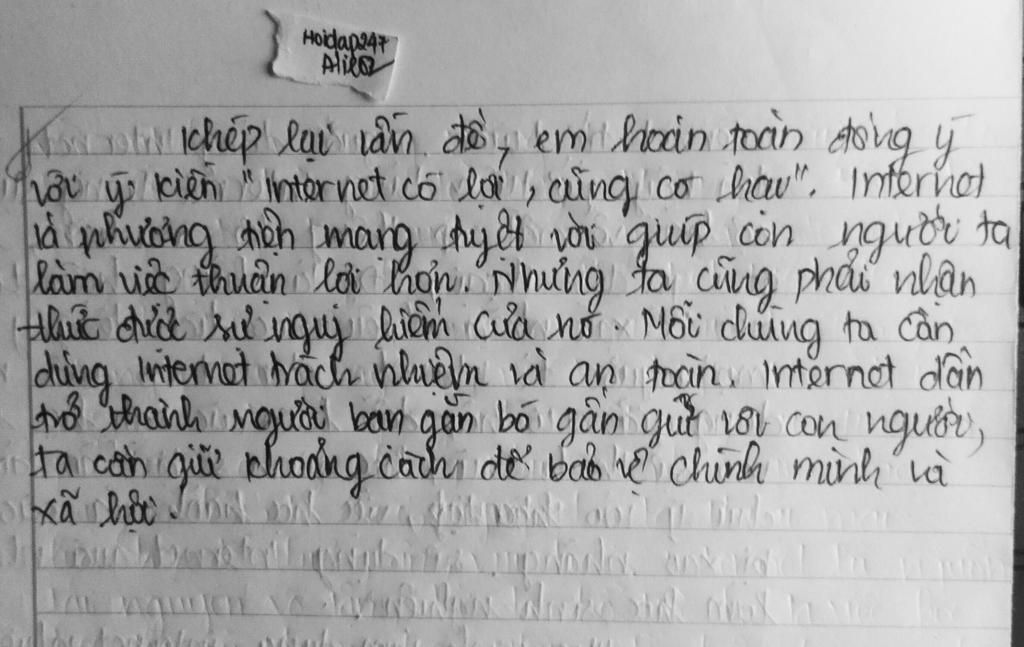 Hoidap247
Khép lại vấn đề, em hoàn toàn đồng ý
với ý kiến "internet có lợi, cũng có hại". Internet
là phương tiện mang tuyệt vời giúp con người ta
làm việc thuận lợi hơn. Nhưng ta cũng phải nhận
thức được sự nguy hiểm của nó. Mỗi chúng ta cần
dùng internet trách nhiệm và an toàn. Internet dần
trở thành người bạn gắn bó gần gũi với con người,
ta cần giữ khoảng cách để bảo vệ chính mình và
xã hội.